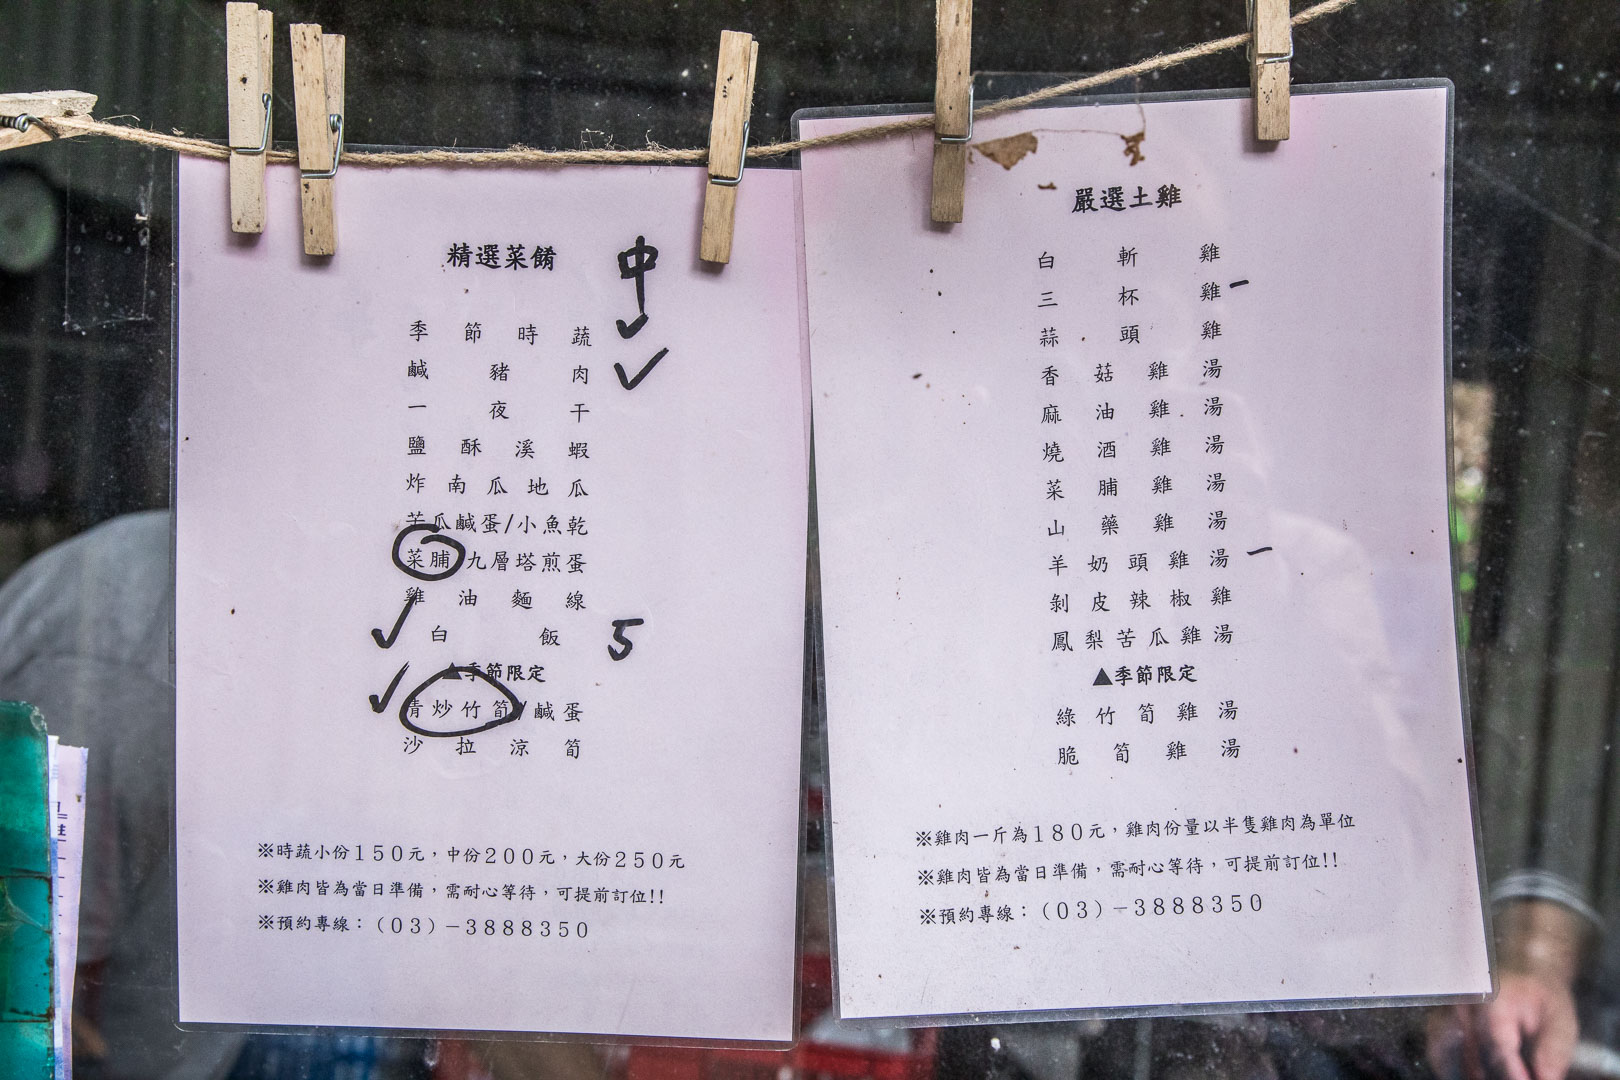 精選菜餚
中
季節時蔬
鹹豬肉
一夜干
鹽酥溪蝦
炸南瓜地瓜
苦瓜鹹蛋/小魚乾
菜脯九層塔煎蛋
雞油麵線
白飯 5
▲季節限定
清炒竹筍/鹹蛋
沙拉涼筍
※時蔬小份150元,中份200元,大份250元
※雞肉皆為當日準備,需耐心等待,可提前訂位!!
※預約專線:(03)-3888350
嚴選土雞
白斬雞
三杯雞 一
蒜頭雞
香菇雞湯
麻油雞湯
燒酒雞湯
菜脯雞湯
山藥雞湯
羊奶頭雞湯 一
剝皮辣椒雞
鳳梨苦瓜雞湯
▲季節限定
綠竹筍雞湯
脆筍雞湯
※雞肉一斤為180元,雞肉份量以半隻雞肉為單位
※雞肉皆為當日準備,需耐心等待,可提前訂位!!
※預約專線:(03)-3888350